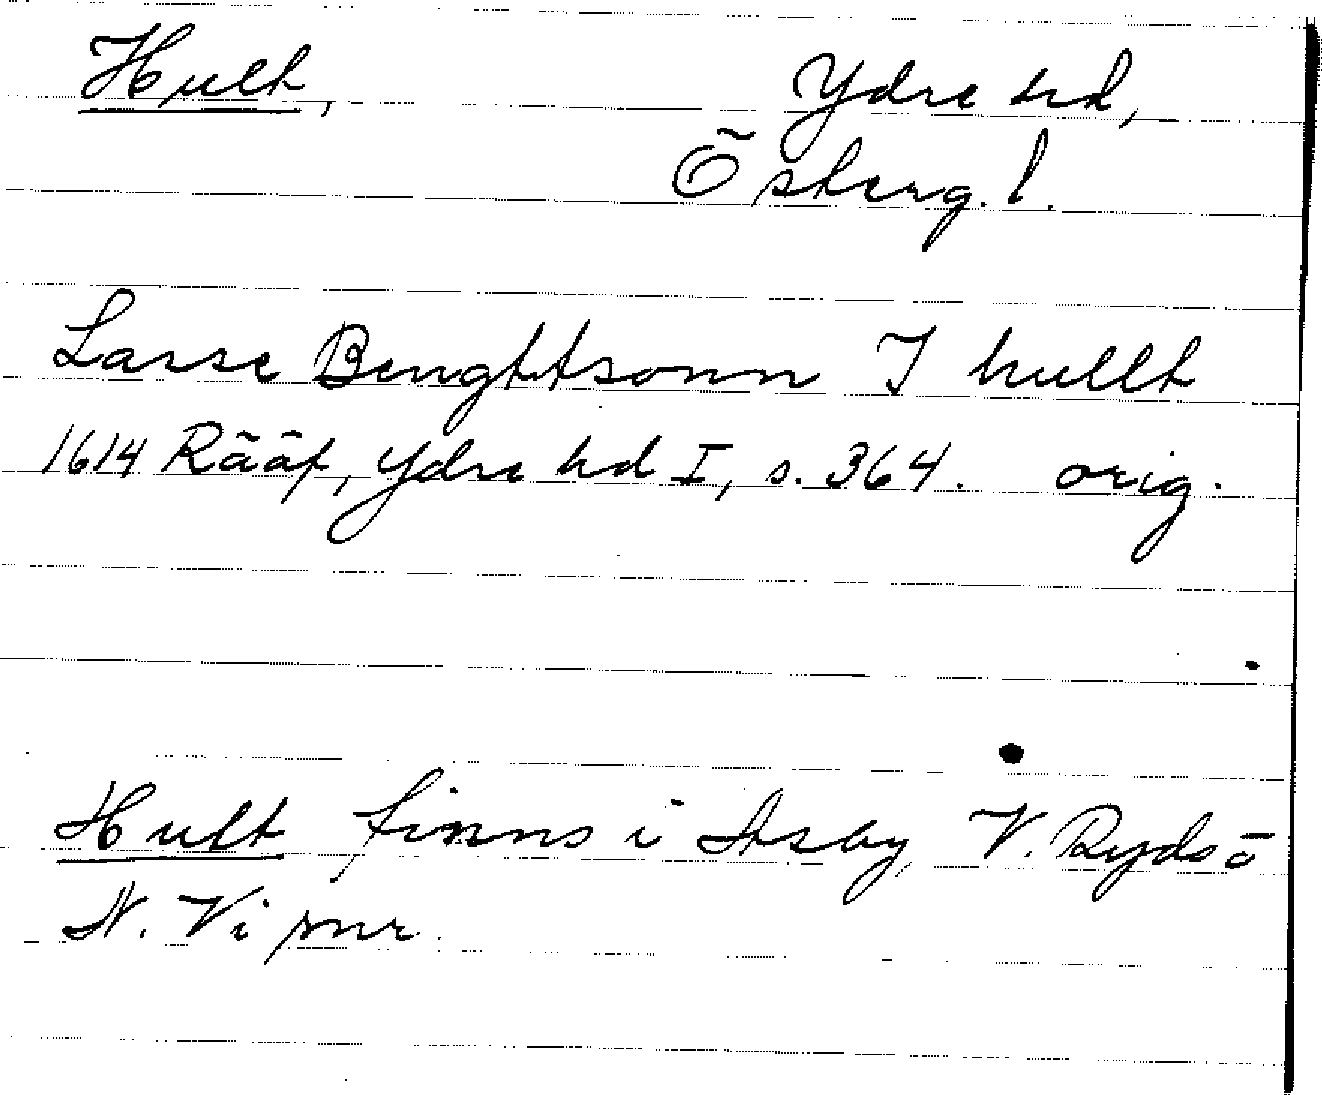 Hult, Ydre hd,
Östergl.
Larse Benghttsonn I hullt
1614 Rääf, Ydre hd I, s. 364. orig.
Hult finns i Asby, V. Ryd o
N. Vi snr.